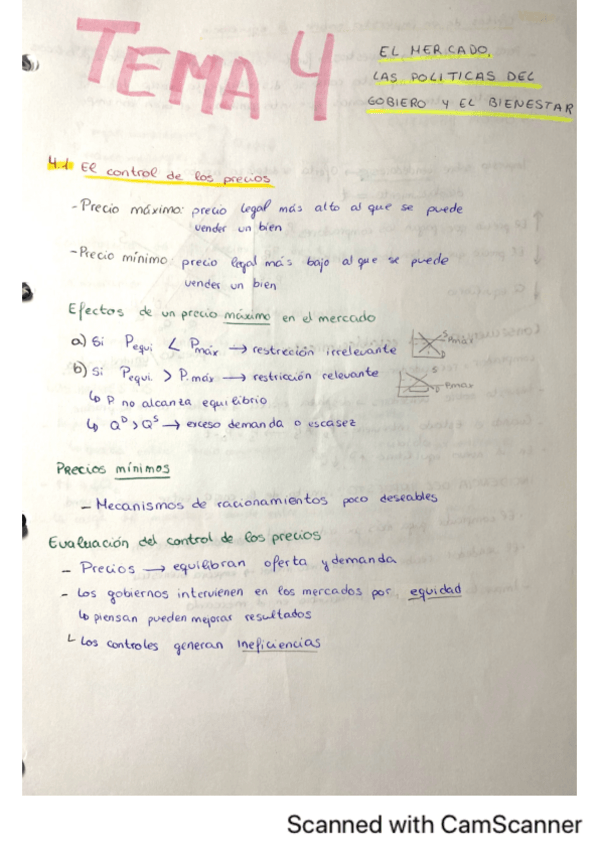 TEMA 4
EL MERCADO,
LAS POLITICAS DEL
GOBIERO Y EL BIENESTAR
4.1 El control de los precios
- Precio máximo: precio legal más alto al que se puede
vender un bien
- Precio mínimo: precio legal más bajo al que se puede
vender un bien
Efectos de un precio máximo en el mercado
a) Si Pequi < Pmáx → restricción irrelevante
S
Pmáx
D
b) Si Pequi. > P.máx → restricción relevante
S
Pmax
↳ P no alcanza equilibrio
↳ Q^D > Q^S → exceso demanda o escasez
Precios mínimos
- Mecanismos de racionamientos poco deseables
Evaluación del control de los precios
- Precios → equilibran oferta y demanda
- Los gobiernos intervienen en los mercados por equidad
↳ piensan pueden mejorar resultados
↳ Los controles generan ineficiencias
Scanned with CamScanner